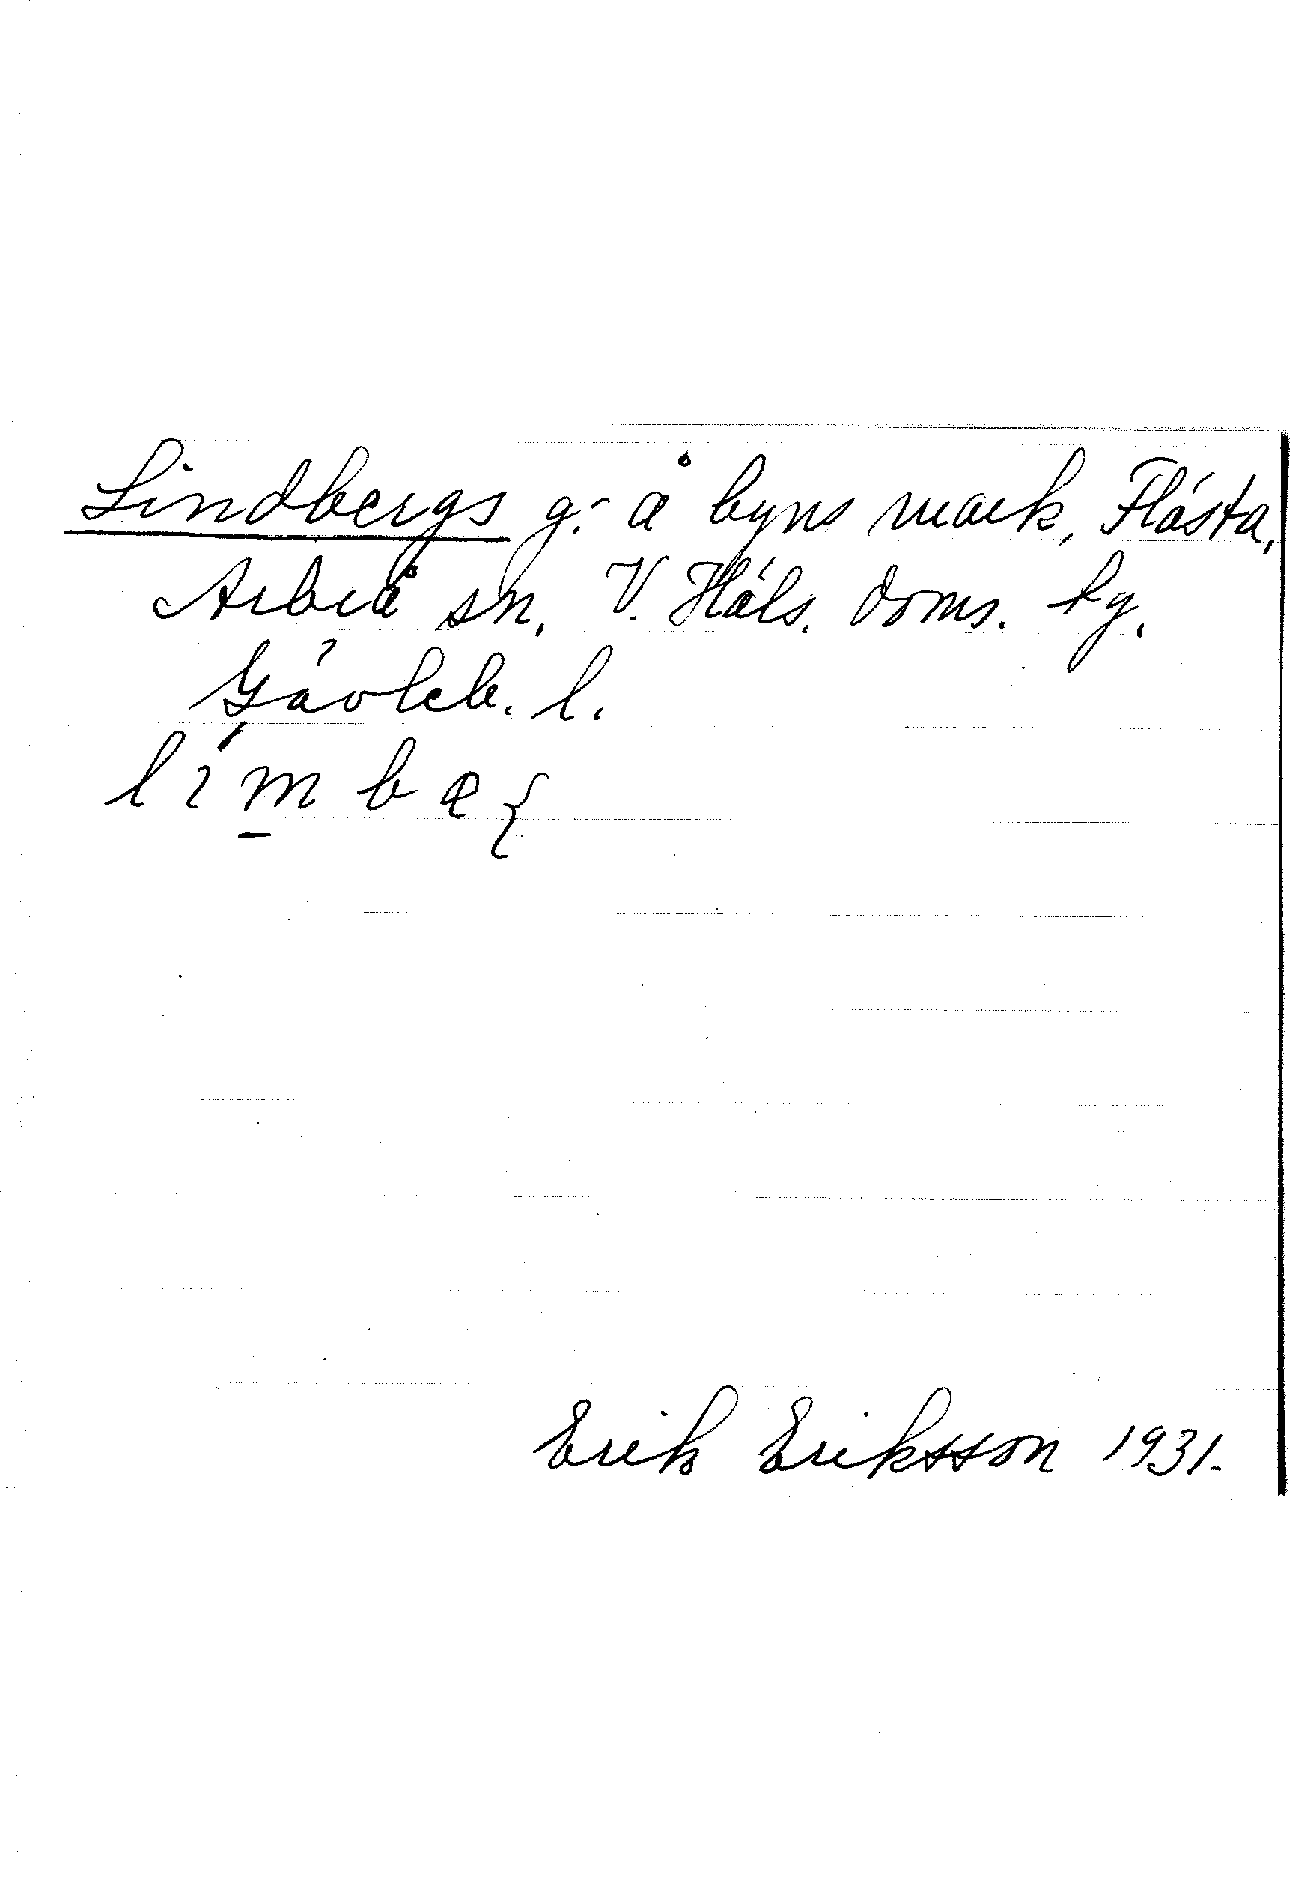 Lindbergs g:- å byns mark, Flästa,
Arbrå sn. V. Häls. doms. tg.
Gävleb. l.
Erik Eriksson 1931.